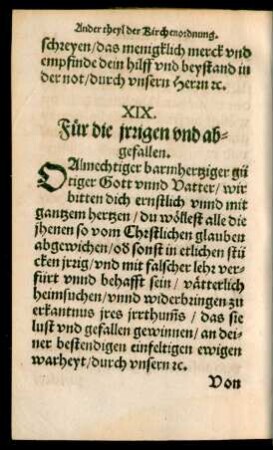 Ander theyl der Kirchenordnung.
schreyen/das menigklich merck vnd
empfinde dein hilff vnd beystand in
der not/durch vnsern Herrn ꝛc.
XIX.
Für die jrrigen vnd ab-
gefallen.
O Almechtiger barmhertziger gü
tiger Gott vnnd Vatter/wir
bitten dich ernstlich vnnd mit
gantzem hertzen/du wöllest alle die
jhenen so vom Chrstlichen glauben
abgewichen/oď sonst in etlichen stü
cken jrrig/vnd mit falscher lehr ver-
fürt vnnd behafft sein/vätterlich
heimsuchen/vnnd widerbringen zu
erkantnus jres jrrthum̃s/das sie
lust vnd gefallen gewinnen/an dei-
ner bestendigen einfeltigen ewigen
warheyt/durch vnsern ꝛc.
Von